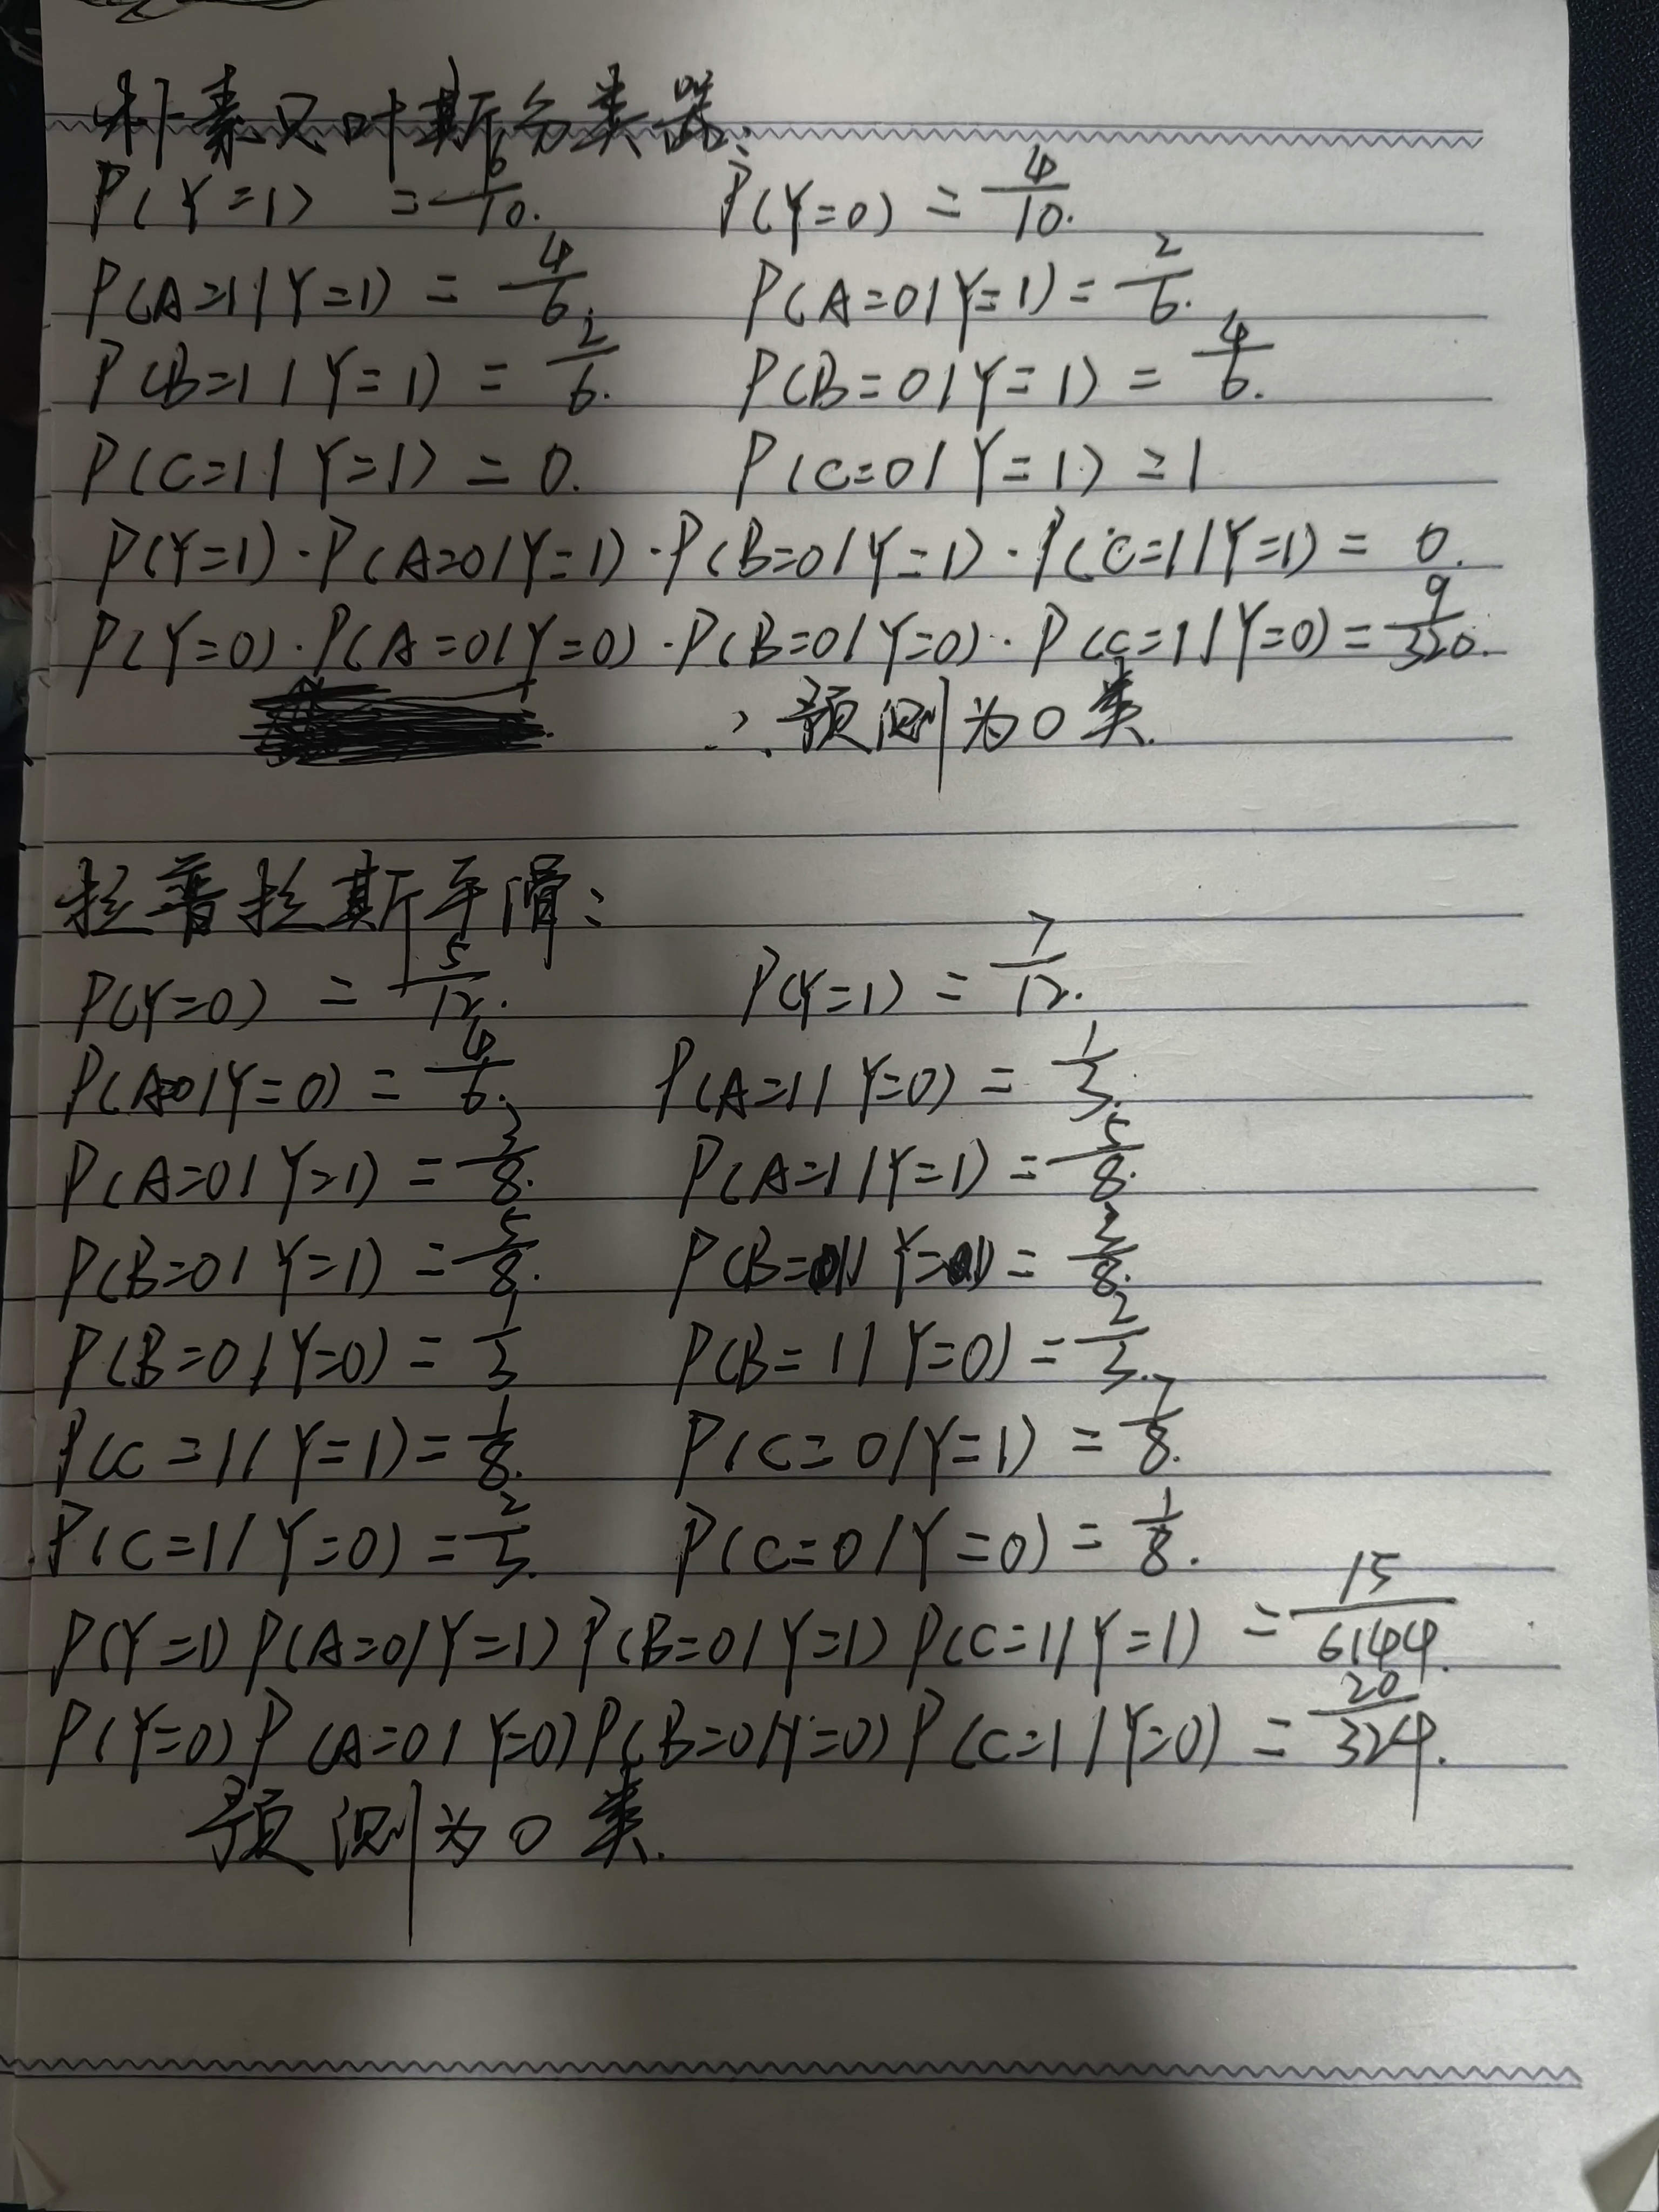 朴素贝叶斯分类器:
P(Y=1) = 6/10. P(Y=0) = 4/10.
P(A=1/Y=1) = 4/6. P(A=0/Y=1) = 2/6.
P(B=1/Y=1) = 2/6. P(B=0/Y=1) = 4/6.
P(C=1/Y=1) = 0. P(C=0/Y=1) = 1
P(Y=1)·P(A=0/Y=1)·P(B=0/Y=1)·P(C=1/Y=1) = 0.
P(Y=0)·P(A=0/Y=0)·P(B=0/Y=0)·P(C=1/Y=0) = 9/320.
∴预测为0类.
拉普拉斯平滑:
P(Y=0) = 5/12. P(Y=1) = 7/12.
P(A=0/Y=0) = 4/6. P(A=1/Y=0) = 1/3.
P(A=0/Y=1) = 3/8. P(A=1/Y=1) = 5/8.
P(B=0/Y=1) = 5/8. P(B=1/Y=1) = 3/8.
P(B=0/Y=0) = 1/3 P(B=1/Y=0) = 2/3.
P(C=1/Y=1) = 1/8. P(C=0/Y=1) = 7/8.
P(C=1/Y=0) = 2/3. P(C=0/Y=0) = 1/8.
P(Y=1)P(A=0/Y=1)P(B=0/Y=1)P(C=1/Y=1) = 15/6144.
P(Y=0)P(A=0/Y=0)P(B=0/Y=0)P(C=1/Y=0) = 20/324.
预测为0类.